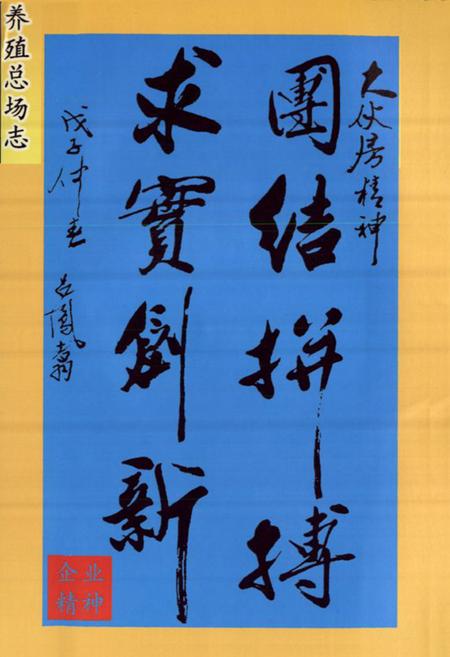 养殖总场志
大伙房精神
團結拼搏
求實創新
戊子仲春
吕鳳翥
企业
精神